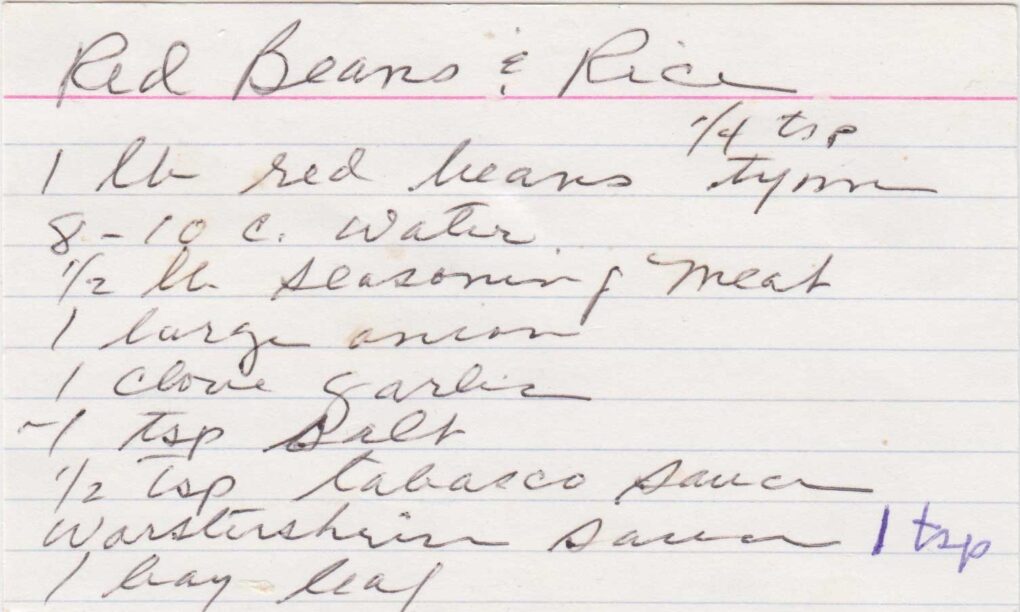 Red Beans & Rice
1/4 tsp
1 lb red beans tyme
8-10 c. Water
1/2 lb. seasoning meat
1 large onion
1 clove garlic
-1 tsp Salt
1/2 Tsp tabasco sauce
Worstershire sauce 1 tsp
1 bay leaf